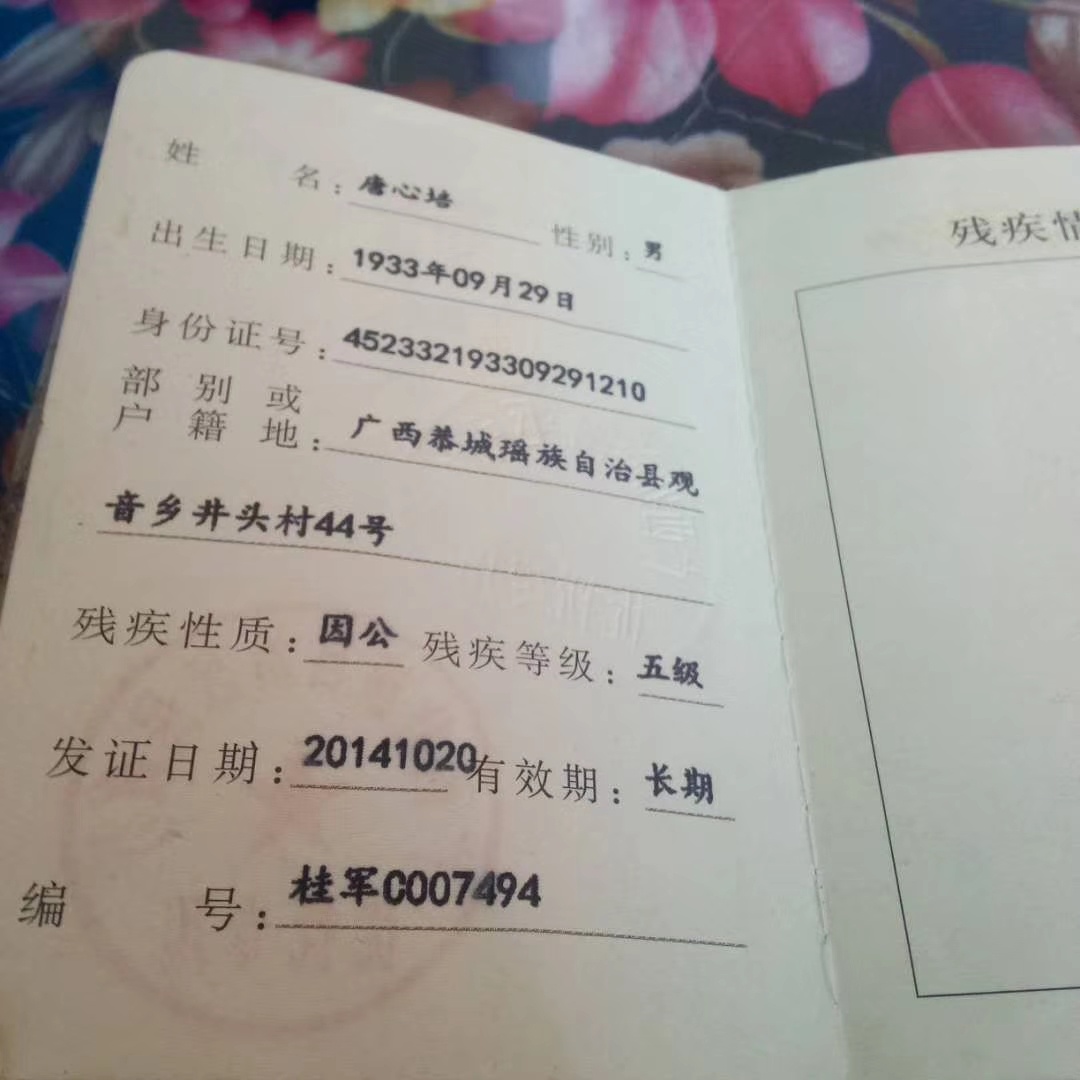 姓名：唐心培 性别：男
出生日期：1933年09月29日
身份证号：452332193309291210
部别或
户籍地：广西恭城瑶族自治县观
音乡井头村44号
残疾性质：因公 残疾等级：五级
发证日期：20141020 有效期：长期
编号：桂军C007494
残疾情